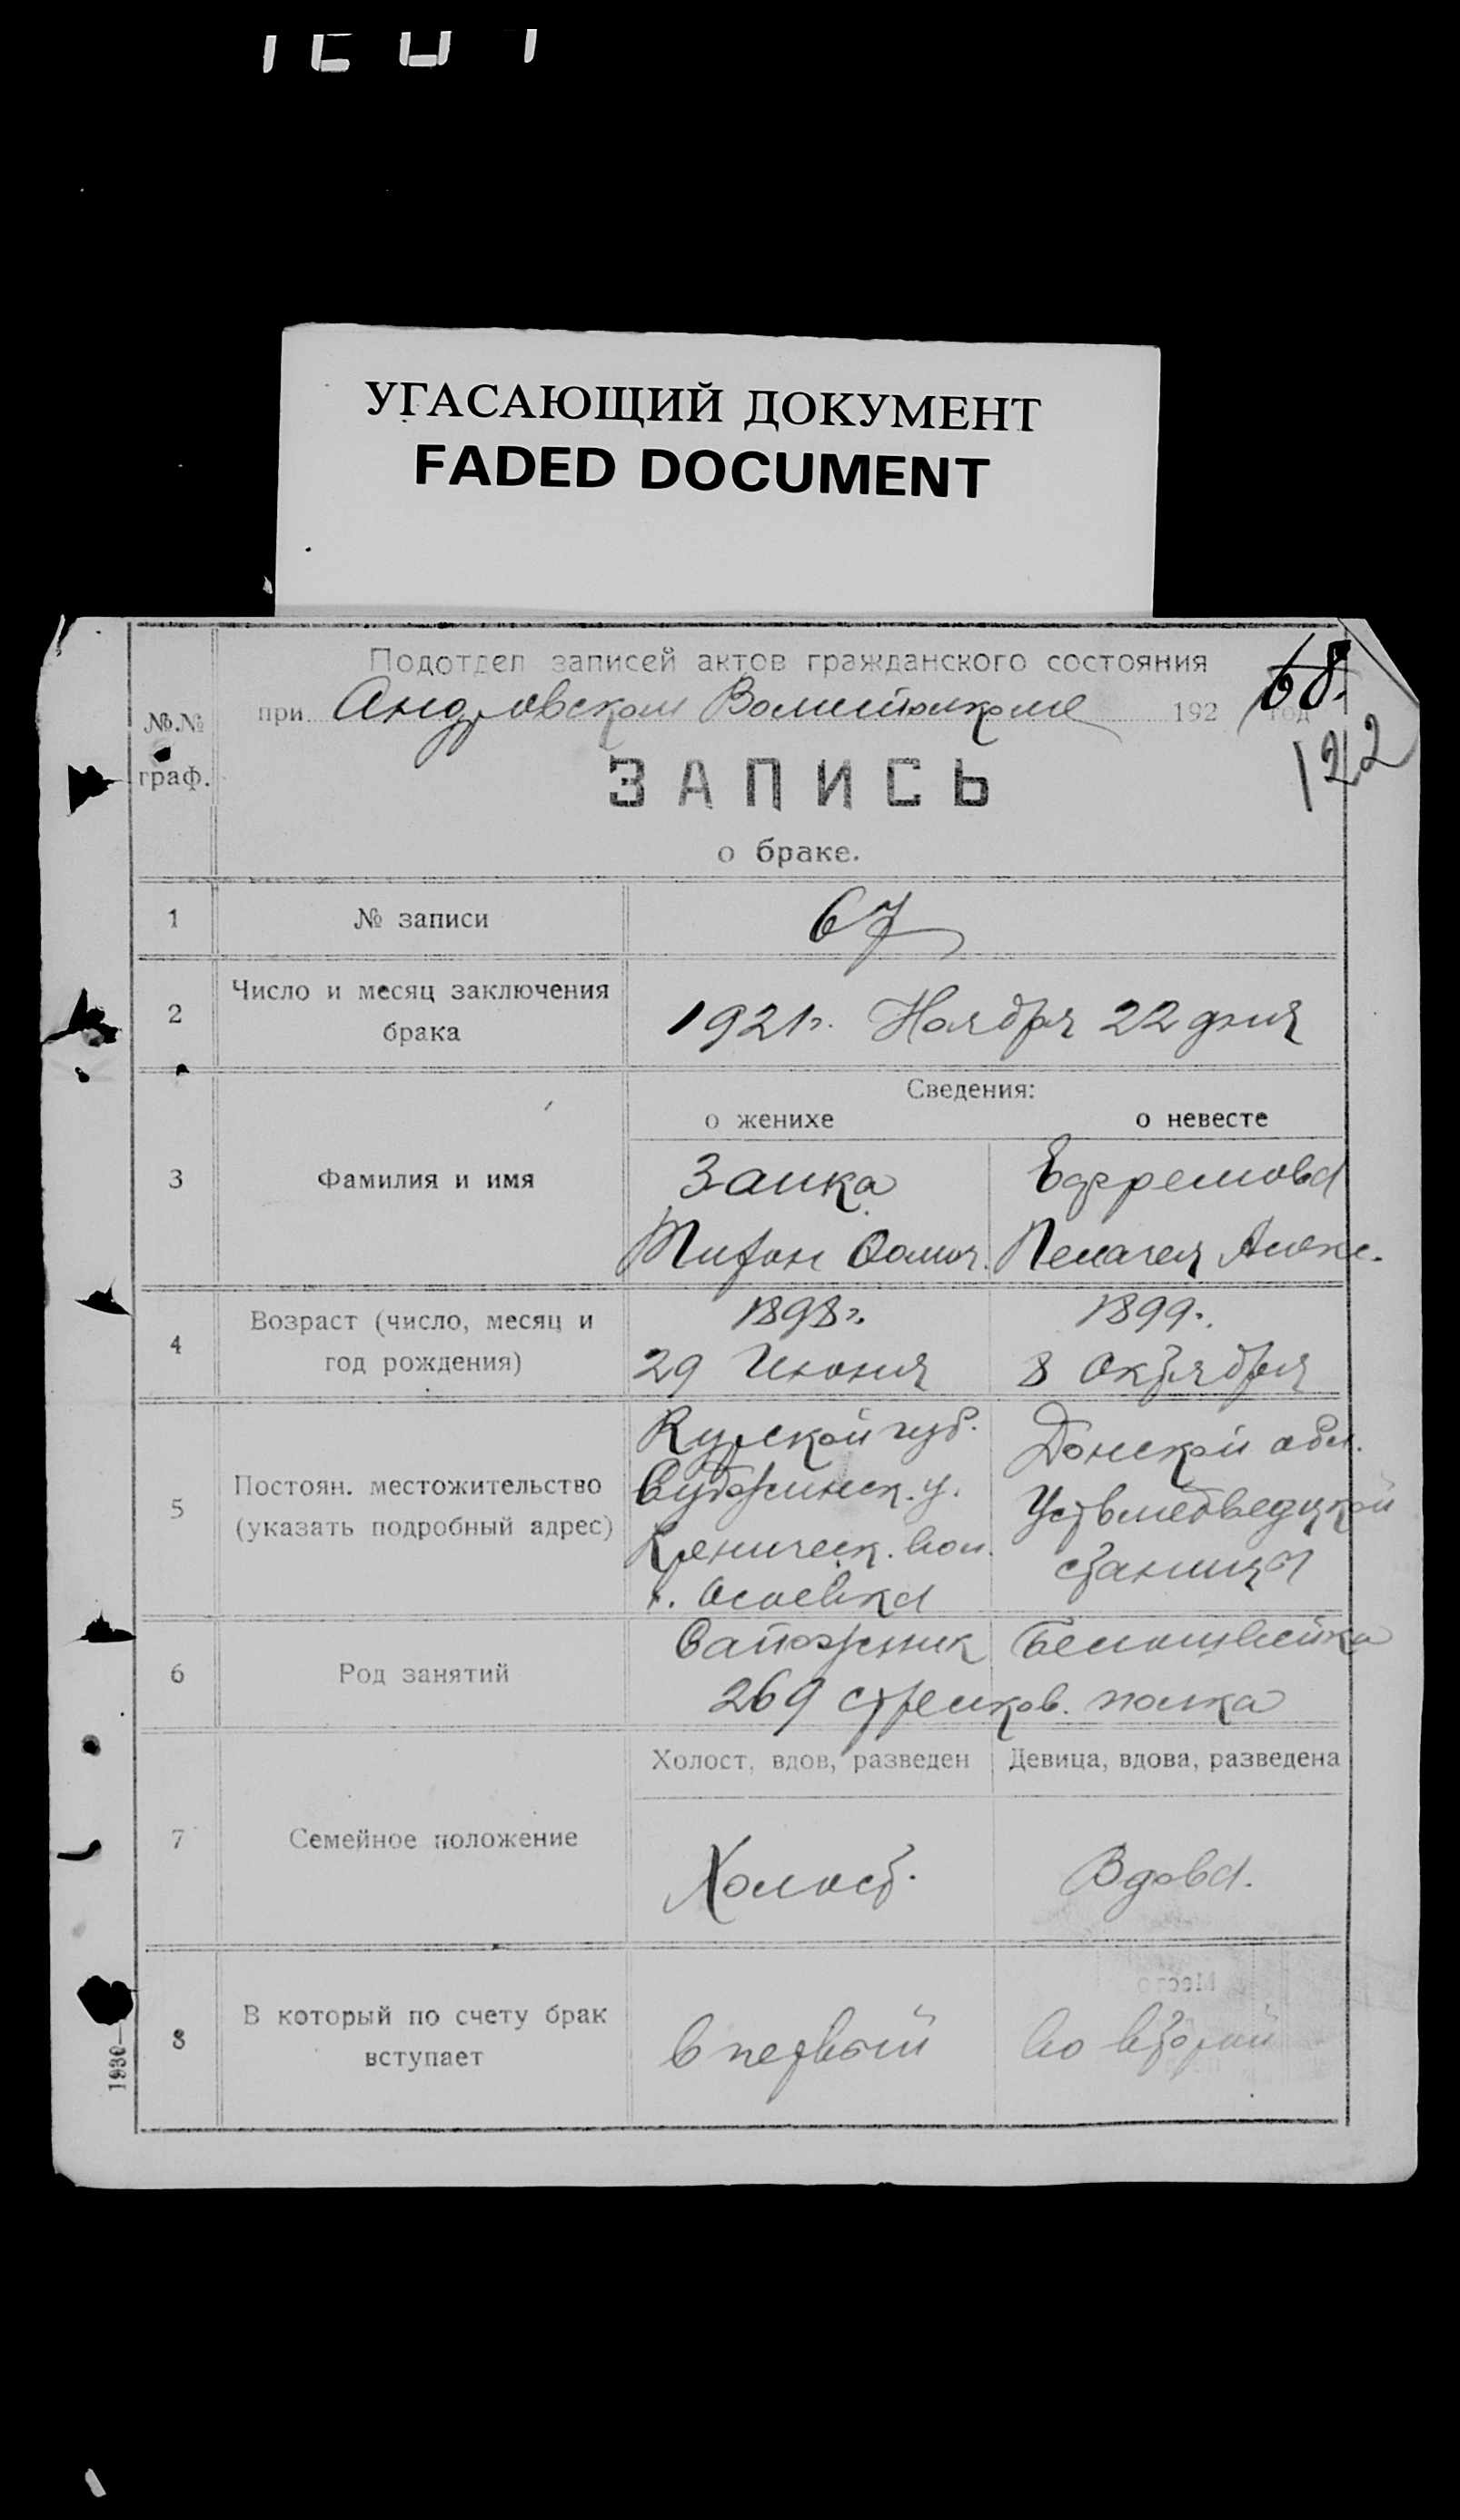 УГАСАЮЩИЙ ДОКУМЕНТ
FADED DOCUMENT
Подотдел записей актов гражданского состояния
при Андровском Волисполкоме 192 год
68.
122
№.№
граф.
ЗАПИСЬ
о браке.
1 № записи 67
2 Число и месяц заключения
брака
1921г. Ноября 22 дня
Сведения:
о женихе о невесте
3 Фамилия и имя
Заика Ефремова
Тифон Фомич. Пелагея Алекс.
4 Возраст (число, месяц и
год рождения)
1898г. 1899г.
29 Июня 8 Октября
5 Постоян. местожительство
(указать подробный адрес)
Курской губ. Донской обл.
Суджинск. у. Устьмедведицкой
вол. станицы
6 Род занятий
Сапожник Белошвейка
269 стрелков. полка
Холост, вдов, разведен Девица, вдова, разведена
7 Семейное положение
Холост. Вдова.
8 В который по счету брак
вступает
в первый во второй
1930—